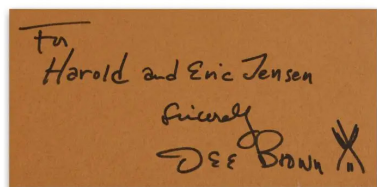 For
Harold and Eric Jensen
Sincerely
Dee Brown